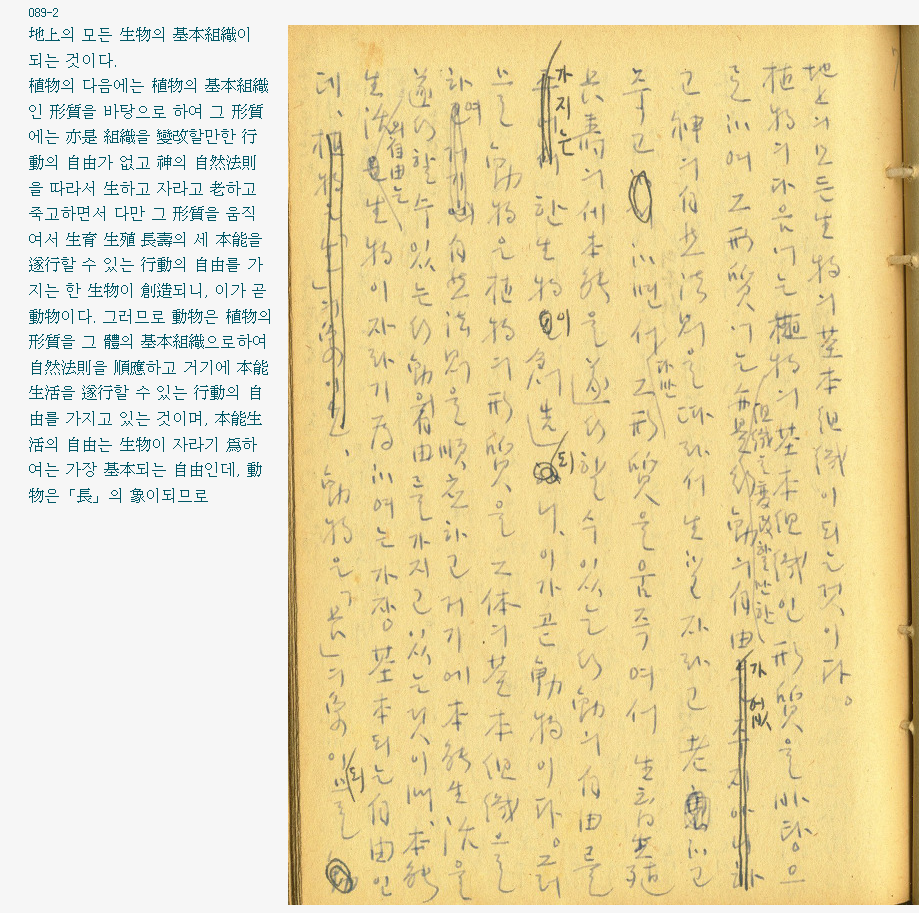 089-2
地上의 모든 生物의 基本組織이
되는 것이다.
植物의 다음에는 植物의 基本組織
인 形質을 바탕으로 하여 그 形質
에는 亦是 組織을 變改할만한 行
動의 自由가 없고 神의 自然法則
을 따라서 生하고 자라고 老하고
죽고하면서 다만 그 形質을 움직
여서 生育 生殖 長壽의 세 本能을
遂行할 수 있는 行動의 自由를 가
지는 한 生物이 創造되니, 이가 곧
動物이다. 그러므로 動物은 植物의
形質을 그 體의 基本組織으로하여
自然法則을 順應하고 거기에 本能
生活을 遂行할 수 있는 行動의 自
由를 가지고 있는 것이며, 本能生
活의 自由는 生物이 자라기 爲하
여는 가장 基本되는 自由인데, 動
物은「長」의 象이되므로
地上의 모든 生物의 基本組織이 되는 것이다。
植物의 다음에는 植物의 基本組織인 形質을 바탕으
로 하여 그 形質에는 亦是 組織을 變改할만한 行動의 自由가 없
고 神의 自然法則을 따라서 生하고 자라고 老하고
죽고 하면서 다만 그 形質을 움즉여서 生育 生殖
長壽의 세 本能을 遂行할 수 있는 行動의 自由를
가지는 한 生物이 創造되니, 이가 곧 動物이다。그러
므로 動物은 植物의 形質을 그 体의 基本組織으로
하여 自然法則을 順応하고 거기에 本能生活을
遂行할 수 있는 行動의 自由를 가지고 있는 것이며, 本能
生活의 自由는 生物이 자라기 为하여는 가장 基本되는 自由인
데, 動物은「長」의 象이되므로